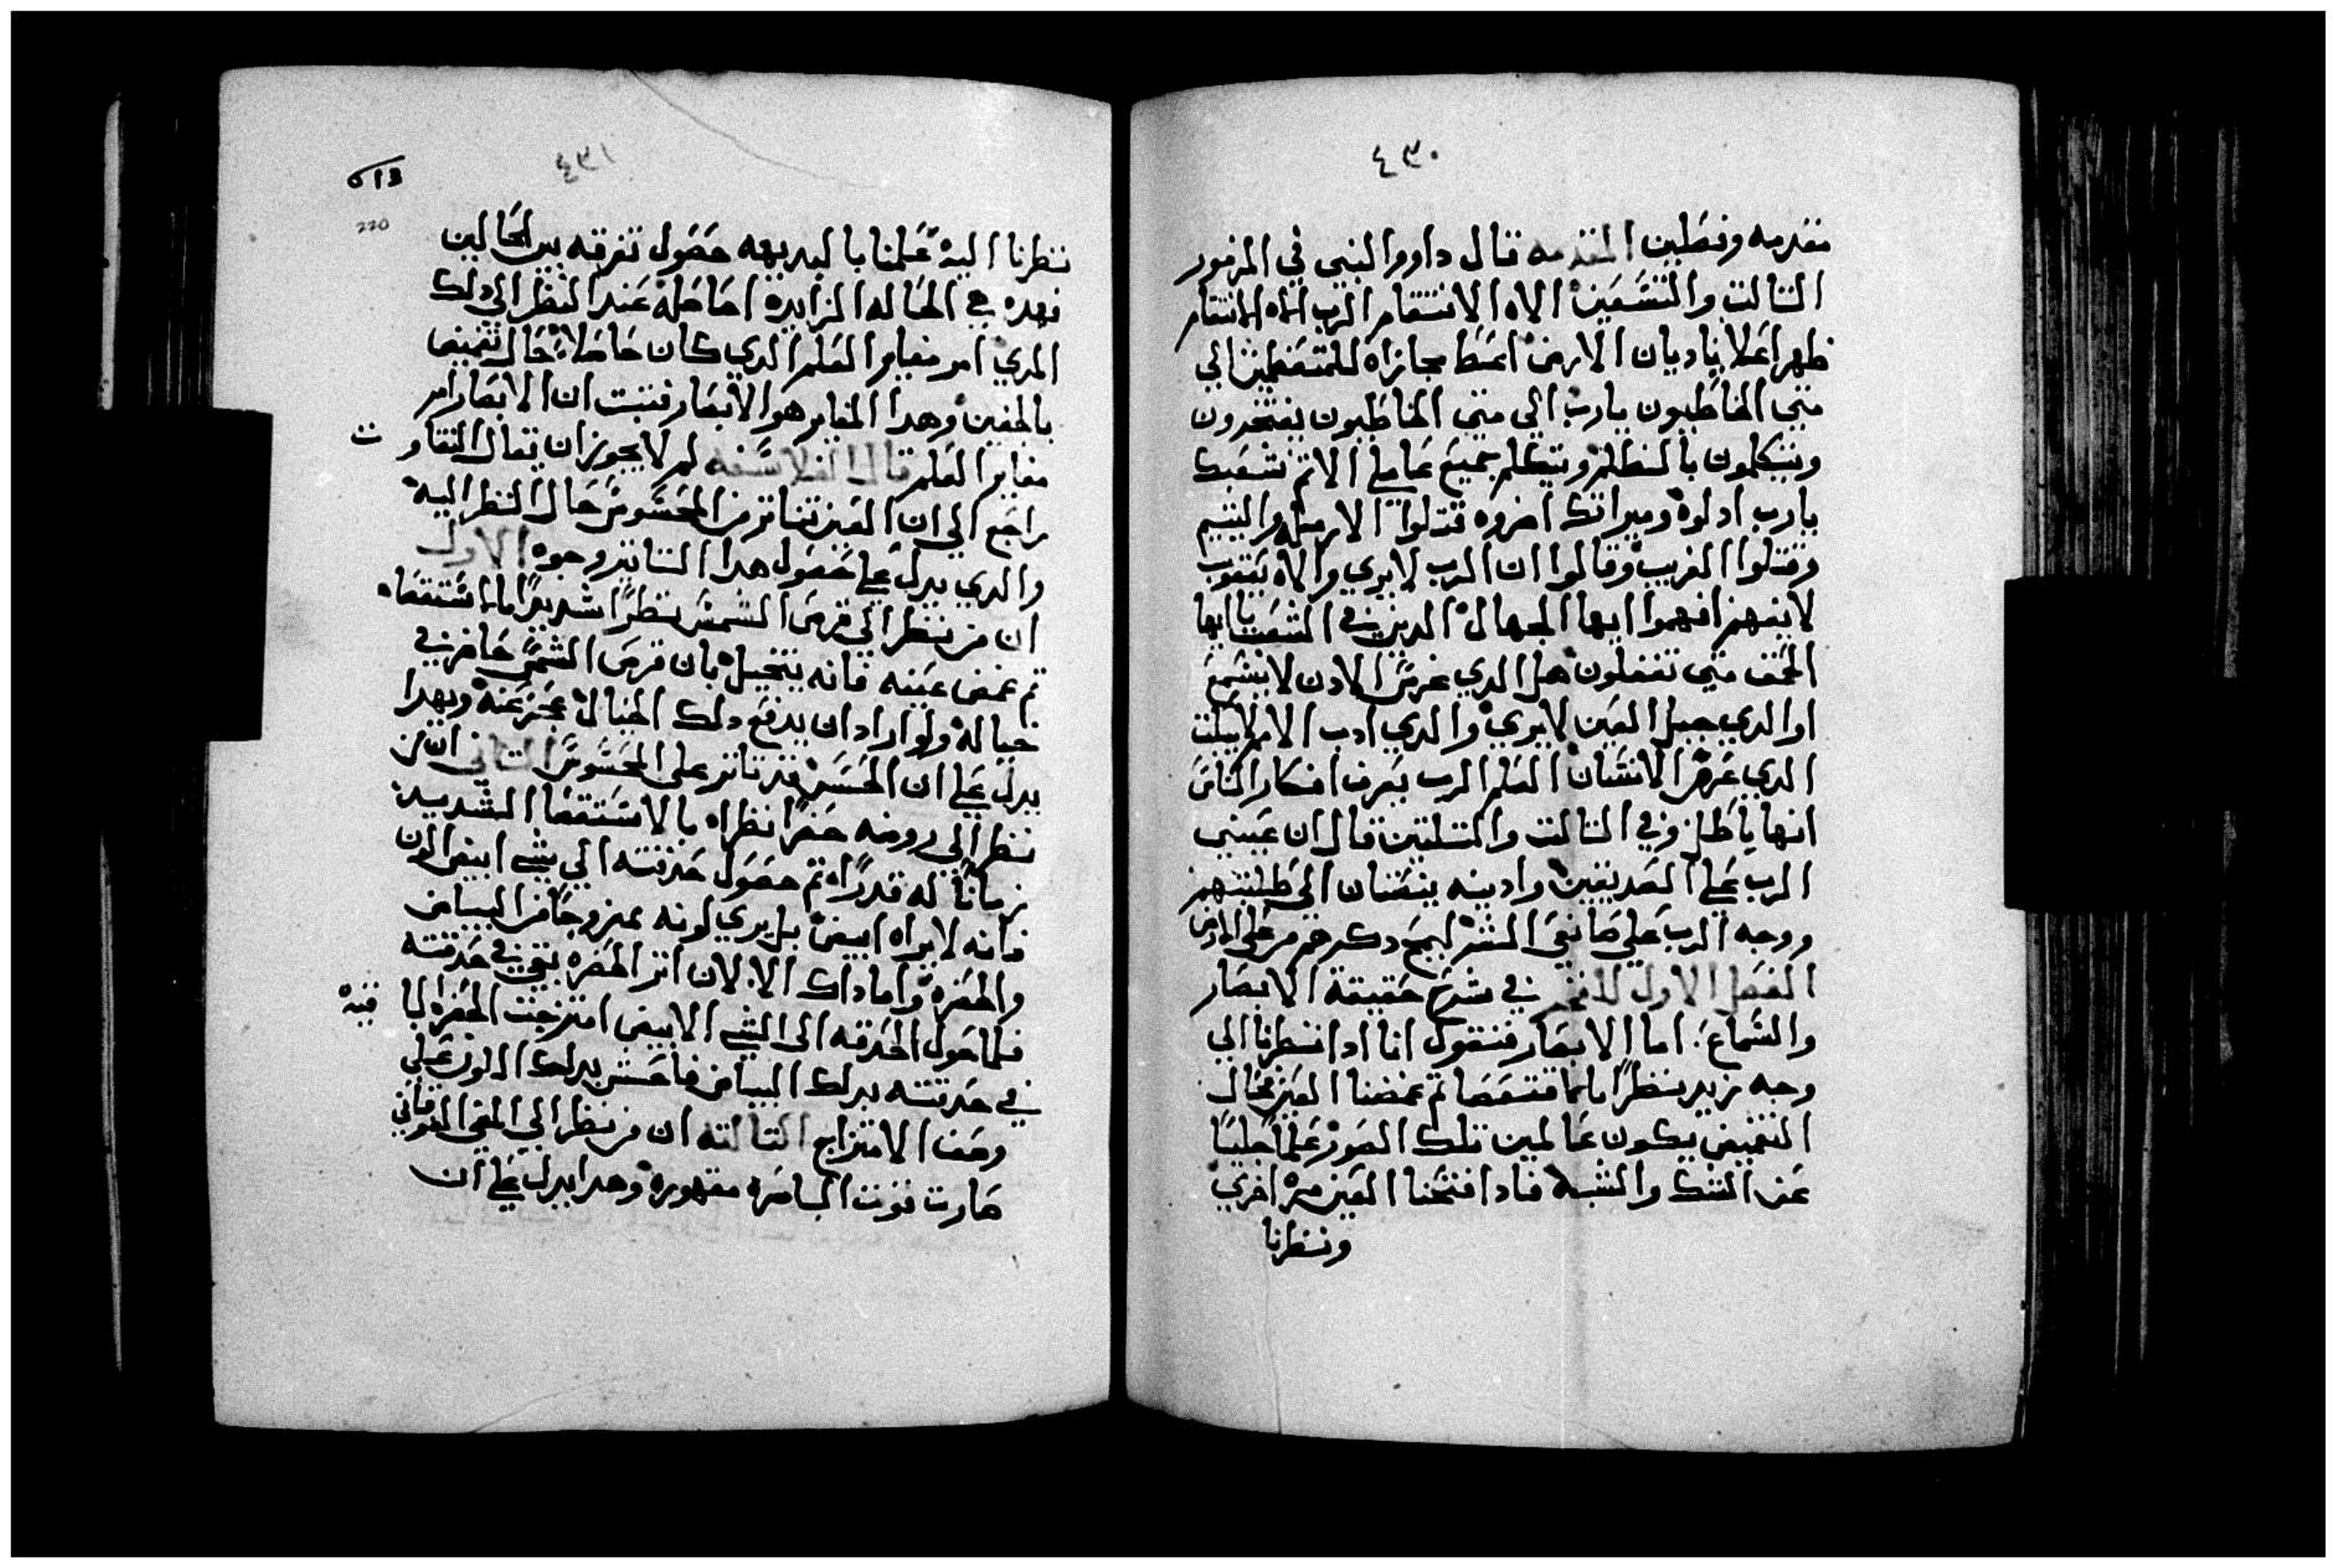 ٤٣٠
مقدمه وفصلين المقدمه قال داوود النبي في المزمور
التالت والتسَعين الاه الانتقام الرب الاه الانتقام
ظهر اعتلا يا ديان الارض اعَط مجازاه للمتعَظمين الي
متي الخاطيون يارب الي متي الخاطيون يفتخرون
ويتكلمون بالظلم ويتكلم جميع عاملي الاتم شعبك
يارب ادلوه وميراتك اضروه قتلوا الارمله واليتيم
وقتلوا الغريب وقالوا ان الرب لا يري والاه يعقوب
لا يفهم افهموا ايها الجهال الدين في الشعب يا ايها
الحمق متي تعقلون هل الدي غرس الادن لا يسمع
او الدي جبل العين لا يري والدي ادب الامم لا يبكت
الدي عرف الانسان العلم الرب يعرف افكار الناس
انها باطله وفي التالت والتلتين قال ان عيني
الرب علي الصديقين وادينه ينصتان الي طلبتهم
ووجه الرب علي صانعي الشر ليمح دكرهم من علي الارض
الفصل الاول في شرح حقيقة الابصار
والسماع. اما الابصار فنقول انا ادا نظرنا الي
وجه زيد نظرًا ما مستقصا تم غمضنا العين فحال
التغميض يكون عالمين تلك الصور علمًا جليًا
عن الشك والشبه فادا فتحنا العين مره اخري
ونظرنا
٤٣١
220
نظرنا اليه علمنا بالبديهه حصول تفرقه بين الحالين
فهده هي الحاله الزايده الحاصله عند النظر الي دلك
المري امر مغاير العلم الدي كان حاصلا حال تغميض
الجفين وهدا المغاير هو الابصار فتبت ان الابصار امر
مغاير العلم قال الفلاسفه لم لا يجوز ان يقال التفاوت
راجع الي ان العين تتاتر من المحسوس حال النظر اليه
والدي يدل علي حصول هدا التاتير وجوه الاول
ان من نظر الي قرص الشمس نظرًا شديدًا ما استقصاه
تم غمض عينه فانه يتخيل بان قرص الشمس حاضر في
خياله ولو اراد ان يدفع دلك الخيال عجز عنه وبهدا
يدل علي ان الحس قد تاتر علي المحسوس التاني ان من
نظر الي روضه خضرا نظراه بالاستقصا الشديد
زمانًا له قدرًا تم حصول حدقته الي شي ابيض اللون
فانه لا يراه ابيض بل يري لونه ممزوجًا من البياض
والخضره وما داك الا لان اتر الخضره بقي في حدقته
فلما حول الحدقه الي الشي الابيض امتزجت الخضره الباقيه
في حدقته بدلك البياض فاحس بدلك اللون علي
وصف الامتزاج التالته ان من نظر الي المضي القوي
صارت قوت الباصره مقهوره وهدا يدل علي ان